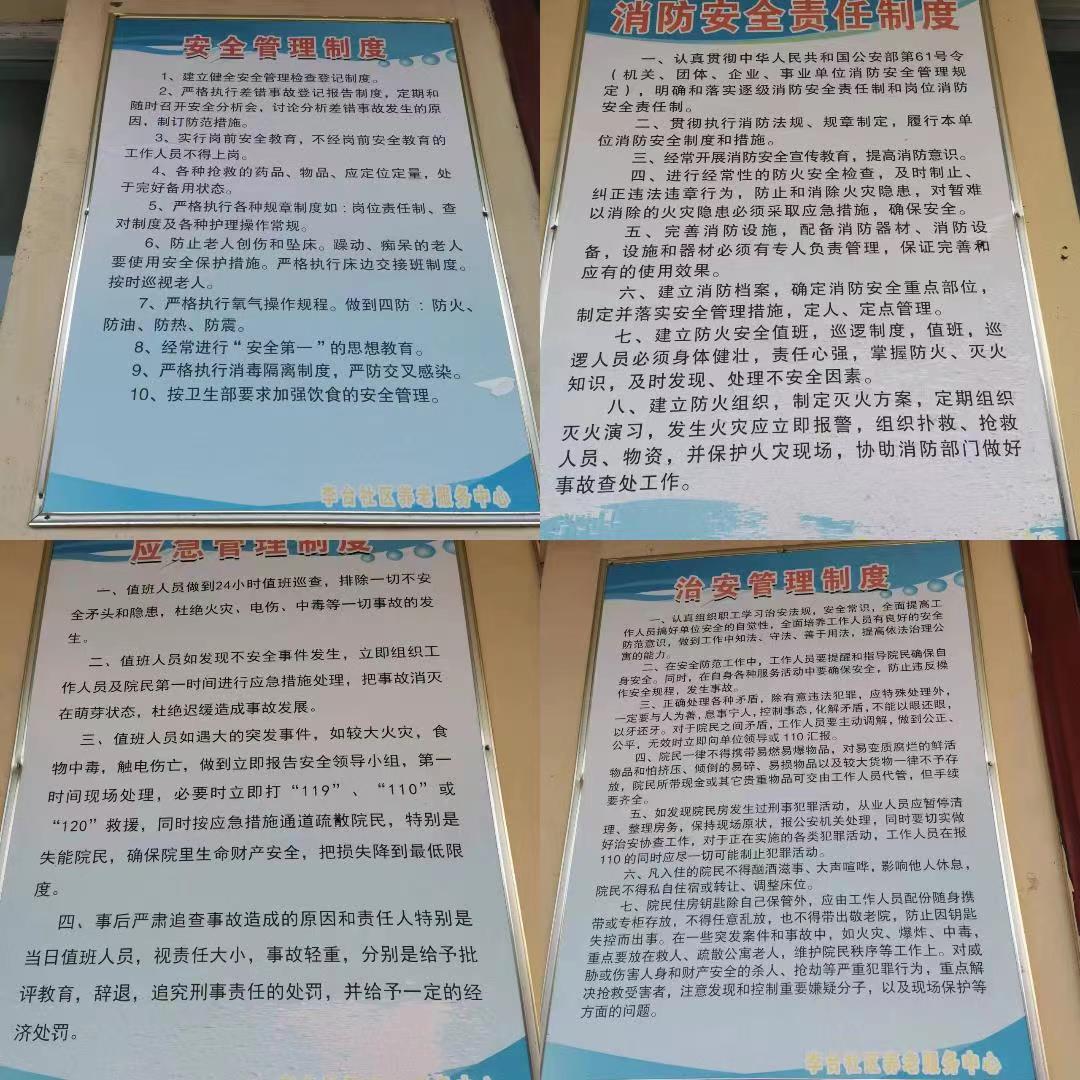 安全管理制度
1、建立健全安全管理检查登记制度。
2、严格执行差错事故登记报告制度，定期和
随时召开安全分析会，讨论分析差错事故发生的原
因，制订防范措施。
3、实行岗前安全教育，不经岗前安全教育的
工作人员不得上岗。
4、各种抢救的药品、物品、应定位定量，处
于完好备用状态。
5、严格执行各种规章制度如：岗位责任制、查
对制度及各种护理操作常规。
6、防止老人创伤和坠床。躁动、痴呆的老人
要使用安全保护措施。严格执行床边交接班制度。
按时巡视老人。
7、严格执行氧气操作规程。做到四防：防火、
防油、防热、防震。
8、经常进行“安全第一”的思想教育。
9、严格执行消毒隔离制度，严防交叉感染。
10、按卫生部要求加强饮食的安全管理。
李台社区养老服务中心
消防安全责任制度
一、认真贯彻中华人民共和国公安部第61号令
（机关、团体、企业、事业单位消防安全管理规
定），明确和落实逐级消防安全责任制和岗位消防
安全责任制。
二、贯彻执行消防法规、规章制定，履行本单
位消防安全制度和措施。
三、经常开展消防安全宣传教育，提高消防意识。
四、进行经常性的防火安全检查，及时制止、
纠正违法违章行为，防止和消除火灾隐患，对暂难
以消除的火灾隐患必须采取应急措施，确保安全。
五、完善消防设施，配备消防器材、消防设
备，设施和器材必须有专人负责管理，保证完善和
应有的使用效果。
六、建立消防档案，确定消防安全重点部位，
制定并落实安全管理措施，定人、定点管理。
七、建立防火安全值班，巡逻制度，值班，巡
逻人员必须身体健壮，责任心强，掌握防火、灭火
知识，及时发现、处理不安全因素。
八、建立防火组织，制定灭火方案，定期组织
灭火演习，发生火灾应立即报警，组织扑救、抢救
人员、物资，并保护火灾现场，协助消防部门做好
事故查处工作。
应急管理制度
一、值班人员做到24小时值班巡查，排除一切不安
全矛头和隐患，杜绝火灾、电伤、中毒等一切事故的发
生。
二、值班人员如发现不安全事件发生，立即组织工
作人员及院民第一时间进行应急措施处理，把事故消灭
在萌芽状态，杜绝迟缓造成事故发展。
三、值班人员如遇大的突发事件，如较大火灾，食
物中毒，触电伤亡，做到立即报告安全领导小组，第一
时间现场处理，必要时立即打“119”、“110”或
“120”救援，同时按应急措施通道疏散院民，特别是
失能院民，确保院里生命财产安全，把损失降到最低限
度。
四、事后严肃追查事故造成的原因和责任人特别是
当日值班人员，视责任大小，事故轻重，分别是给予批
评教育，辞退，追究刑事责任的处罚，并给予一定的经
济处罚。
治安管理制度
一、认真组织职工学习治安法规，安全常识，全面提高工
作人员搞好单位安全的自觉性，全面培养工作人员有良好的安全
防范意识，做到工作中知法、守法、善于用法，提高依法治理公
寓的能力。
二、在安全防范工作中，工作人员要提醒和指导院民确保自
身安全。同时，在自身各种服务活动中要确保安全，防止违反操
作安全规程，发生事故。
三、正确处理各种矛盾，除有意违法犯罪，应特殊处理外，
一定要与人为善，息事宁人，控制事态，化解矛盾，不能以眼还眼，
以牙还牙。对于院民之间矛盾，工作人员要主动调解，做到公正、
公平，无效时立即向单位领导或110汇报。
四、院民一律不得携带易燃易爆物品，对易变质腐烂的鲜活
物品和怕挤压、倾倒的易碎、易损物品以及较大货物一律不予存
放，院民所带现金或其它贵重物品可交由工作人员代管，但手续
要齐全。
五、如发现院民房发生过刑事犯罪活动，从业人员应暂停清
理、整理房务，保持现场原状，报公安机关处理，同时要切实做
好治安协查工作，对于正在实施的各类犯罪活动，工作人员在报
110的同时应尽一切可能制止犯罪活动。
六、凡入住的院民不得酗酒滋事、大声喧哗，影响他人休息，
院民不得私自住宿或转让、调整床位。
七、院民住房钥匙除自己保管外，应由工作人员配份随身携
带或专柜存放，不得任意乱放，也不得带出敬老院，防止因钥匙
失控而出事。在一些突发案件和事故中，如火灾、爆炸、中毒，
重点要放在救人、疏散公寓老人，维护院民秩序等工作上。对威
胁或伤害人身和财产安全的杀人、抢劫等严重犯罪行为，重点解
决抢救受害者，注意发现和控制重要嫌疑分子，以及现场保护等
方面的问题。
李台社区养老服务中心